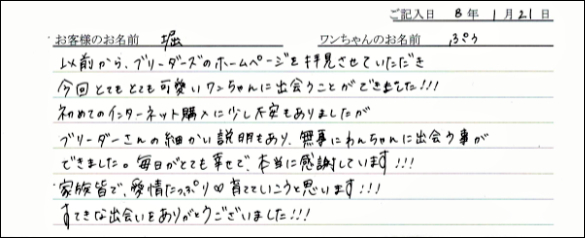 ご記入日 8年 1月21日
お客様のお名前 堀 ワンちゃんのお名前 ぷう
以前から、ブリーダーズのホームページを拝見させていただき
今回とてもとても可愛いワンちゃんに出会うことができました!!!
初めてのインターネット購入に少し不安もありましたが
ブリーダーさんの細かい説明もあり、無事にわんちゃんに出会う事が
できました。毎日がとても幸せで、本当に感謝しています!!!
家族皆で、愛情たっぷり♡育てていこうと思います!!!
すてきな出会いをありがとうございました!!!